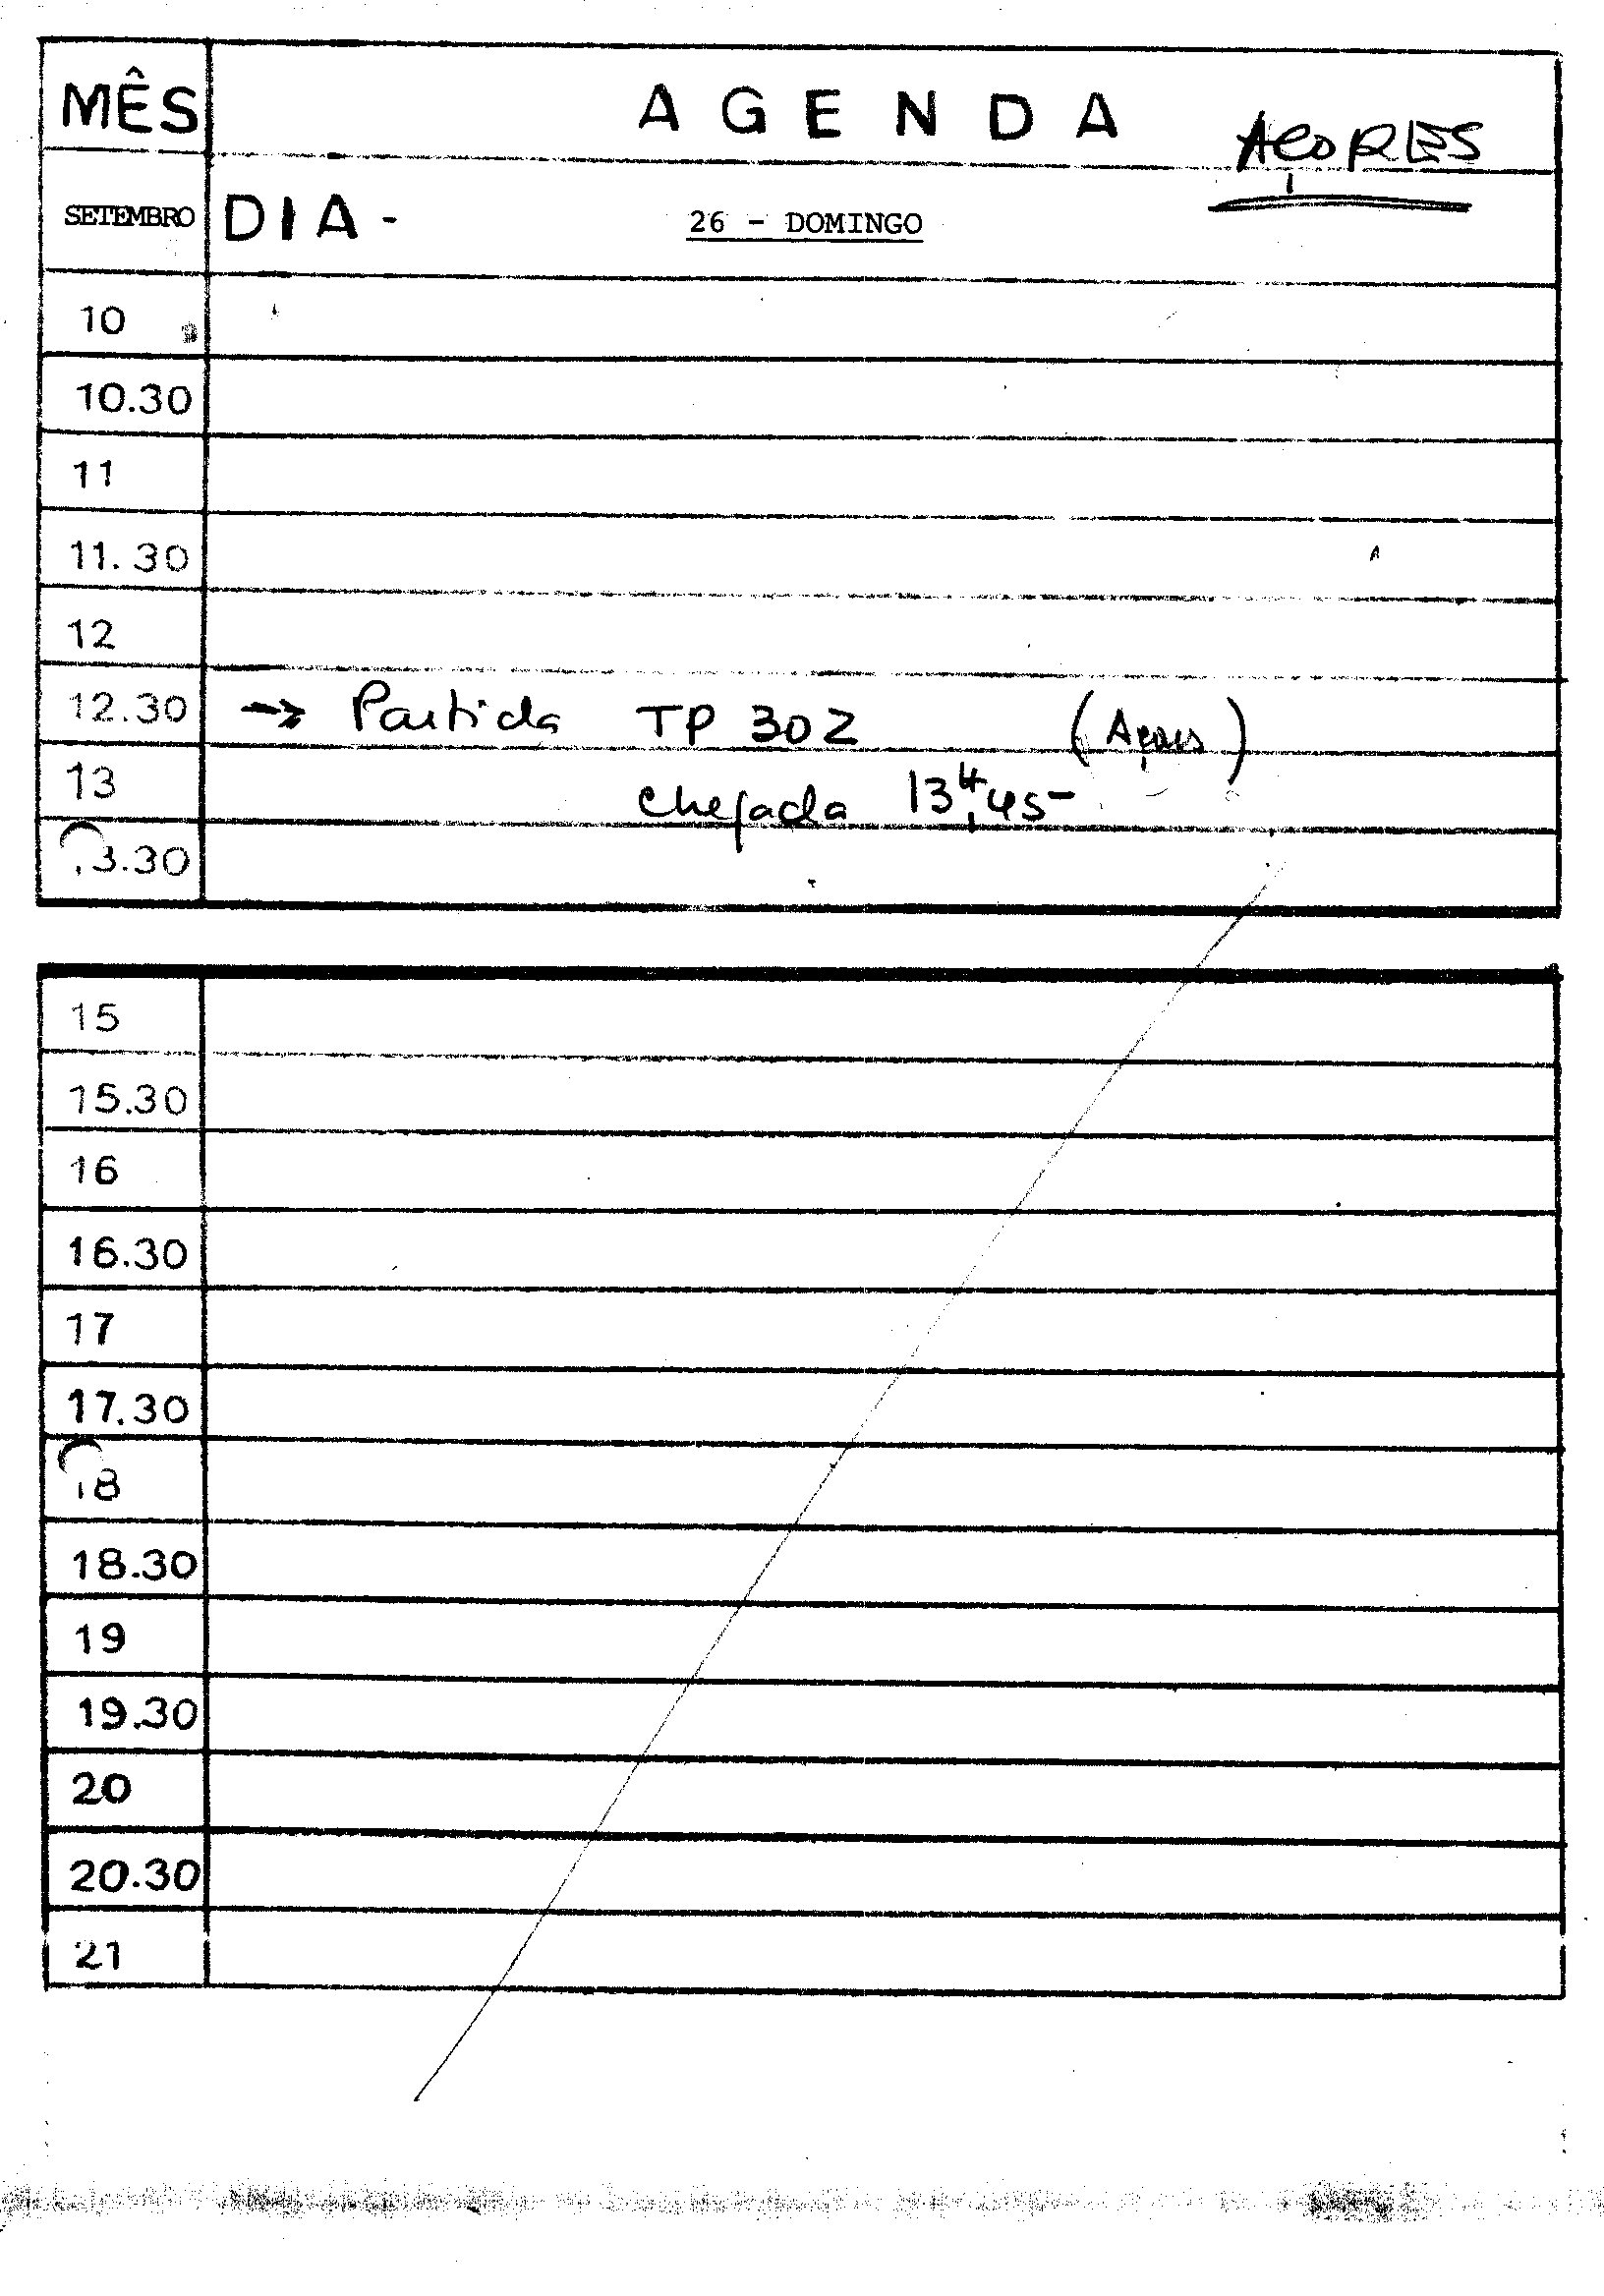 MÊS AGENDA AÇORES
SETEMBRO DIA - 26 - DOMINGO
10
10.30
11
11.30
12
12.30 → Partida TP 302 (Açores)
13 chegada 13H,45
13.30
15
15.30
16
16.30
17
17.30
18
18.30
19
19.30
20
20.30
21